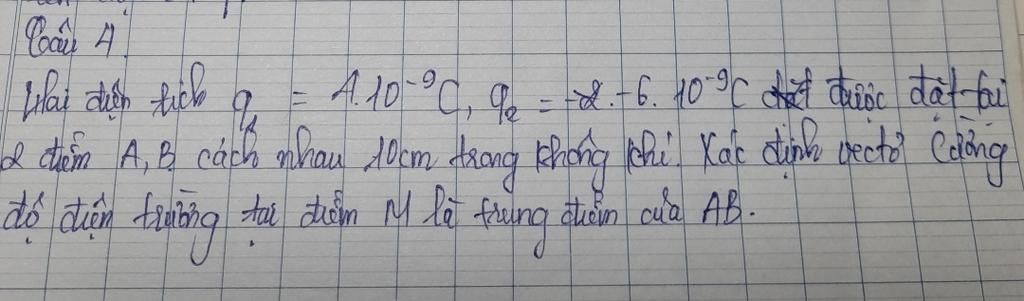 Câu 4
Hai điện tích q₁ = 4.10⁻⁹C, q₂ = -6.10⁻⁹C được đặt tại
2 điểm A, B cách nhau 10cm trong không khí. Xác định vectơ Cường
độ điện trường tại điểm M là trung điểm của AB.